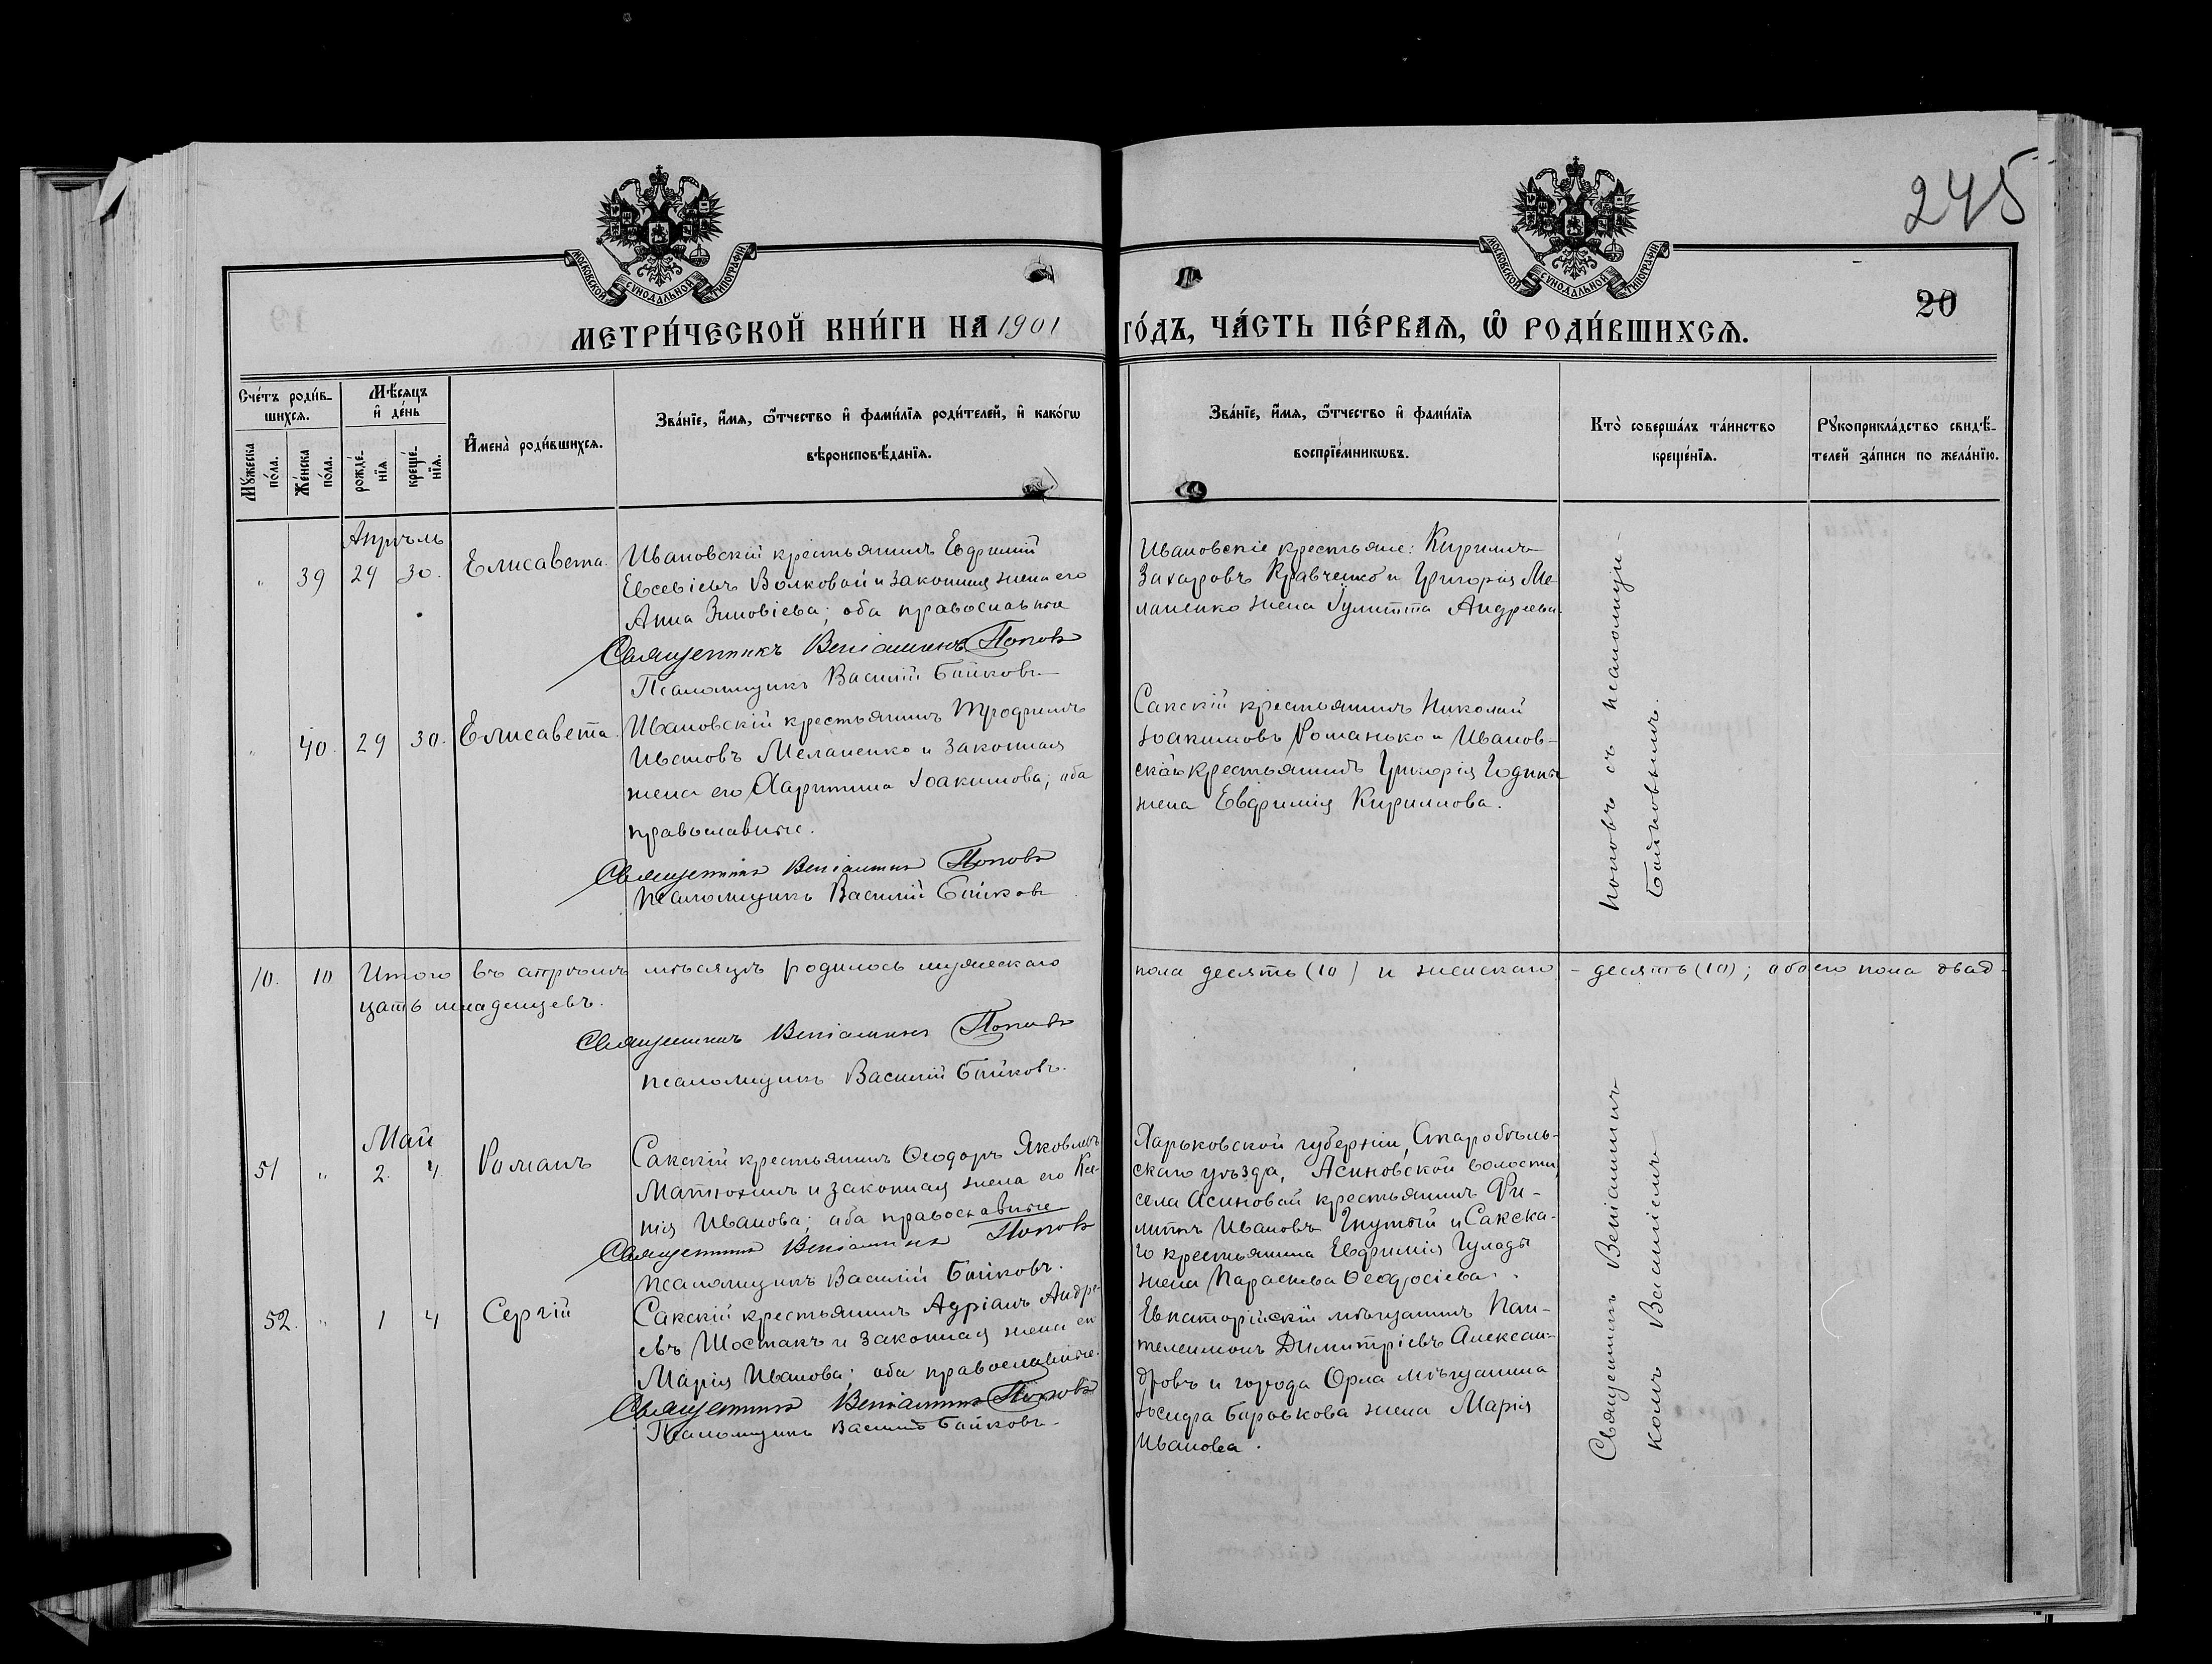 245
МОСКОВСКОЙ СѴНОДАЛЬНОЙ ТИПОГРАФІИ.
МОСКОВСКОЙ СѴНОДАЛЬНОЙ ТИПОГРАФІИ.
20
МЕТРИ́ЧЕСКОЙ КНИ́ГИ НА 1901 ГО́ДЪ, ЧА́СТЬ ПЕ́РВАѦ, Ѽ РОДИ́ВШИХСѦ.
Сче́тъ роди́в-
шихся.
Мꙋ́жеска по́ла.
Же́нска по́ла.
Мѣ́сяцъ
и҆ де́нь
рожде́-
нїя.
креще́-
нїя.
И҆мена̀ роди́вшихся.
Зва́нїе, и҆́мя, ѻ҆́тчество и҆ фами́лїя роди́телей, и҆ како́гѡ
вѣроисповѣ́данїя.
Зва́нїе, и҆́мя, ѻ҆́тчество и҆ фами́лїя
воспрїе́мникѡвъ.
Кто̀ соверша́лъ та́инство
креще́нїя.
Рꙋкоприкла́дство свидѣ́-
телей за́писи по жела́нїю.
Апрѣль
" 39 29 30. Елисавета.
Ивановскій крестьянинъ Евфимій
Евсевіевъ Волковой и законная жена его
Анна Зиновіева; оба православные
Священникъ Веніаминъ Поповъ
Псаломщикъ Василій Байковъ
Ивановскіе крестьяне: Кириллъ
Захаровъ Кравченко и Григорія Ме-
ланенко жена Іулитта Андреева.
" 40. 29 30. Елисавета.
Ивановскій крестьянинъ Трофимъ
Меланенко и законная
жена его Харитина Іоакимова; оба
православные.
Священникъ Веніаминъ Поповъ
Псаломщикъ Василій Байковъ
Сакскій крестьянинъ Николай
Іоакимовъ Романько и Иванов-
скаго Григорія Годины
жена Евфимія Кириллова.
Поповъ съ псаломщи-
Байковымъ.
10. 10 Итого въ апрѣлѣ мѣсяцѣ родилось мужескаго пола десять (10) и женскаго - десять (10); обоего пола двад-
цать младенцевъ.
Священникъ Веніаминъ Поповъ
Псаломщикъ Василій Байковъ.
Май
51 " 2. 4. Романъ
Сакскій крестьянинъ Ѳеодоръ Яковлевъ
Матюхинъ и законная жена его Ксе-
нія Иванова; оба православные
Священникъ Веніаминъ Поповъ
Псаломщикъ Василій Байковъ.
Харьковской губерніи, Старобѣль-
скаго уѣзда, Асиновской волости,
села Асиновой крестьянинъ Фи-
липпъ Ивановъ Гнутый и Сакска-
го крестьянина Евфимія Гулады
жена Параскева Ѳеодосіева.
52. " 1 4 Сергій
Сакскій крестьянинъ Адріанъ Андре-
евъ Шостакъ и законная жена его
Марія Иванова; оба православные.
Священникъ Веніаминъ Поповъ
Псаломщикъ Василій Байковъ
Евпаторійскій мѣщанинъ Пан-
телеимонъ Димитріевъ Алексан-
дровъ и города Орла мѣщанина
Іосифа Боровкова жена Марія
Иванова.
Священникъ Веніаминъ
комъ Василіемъ